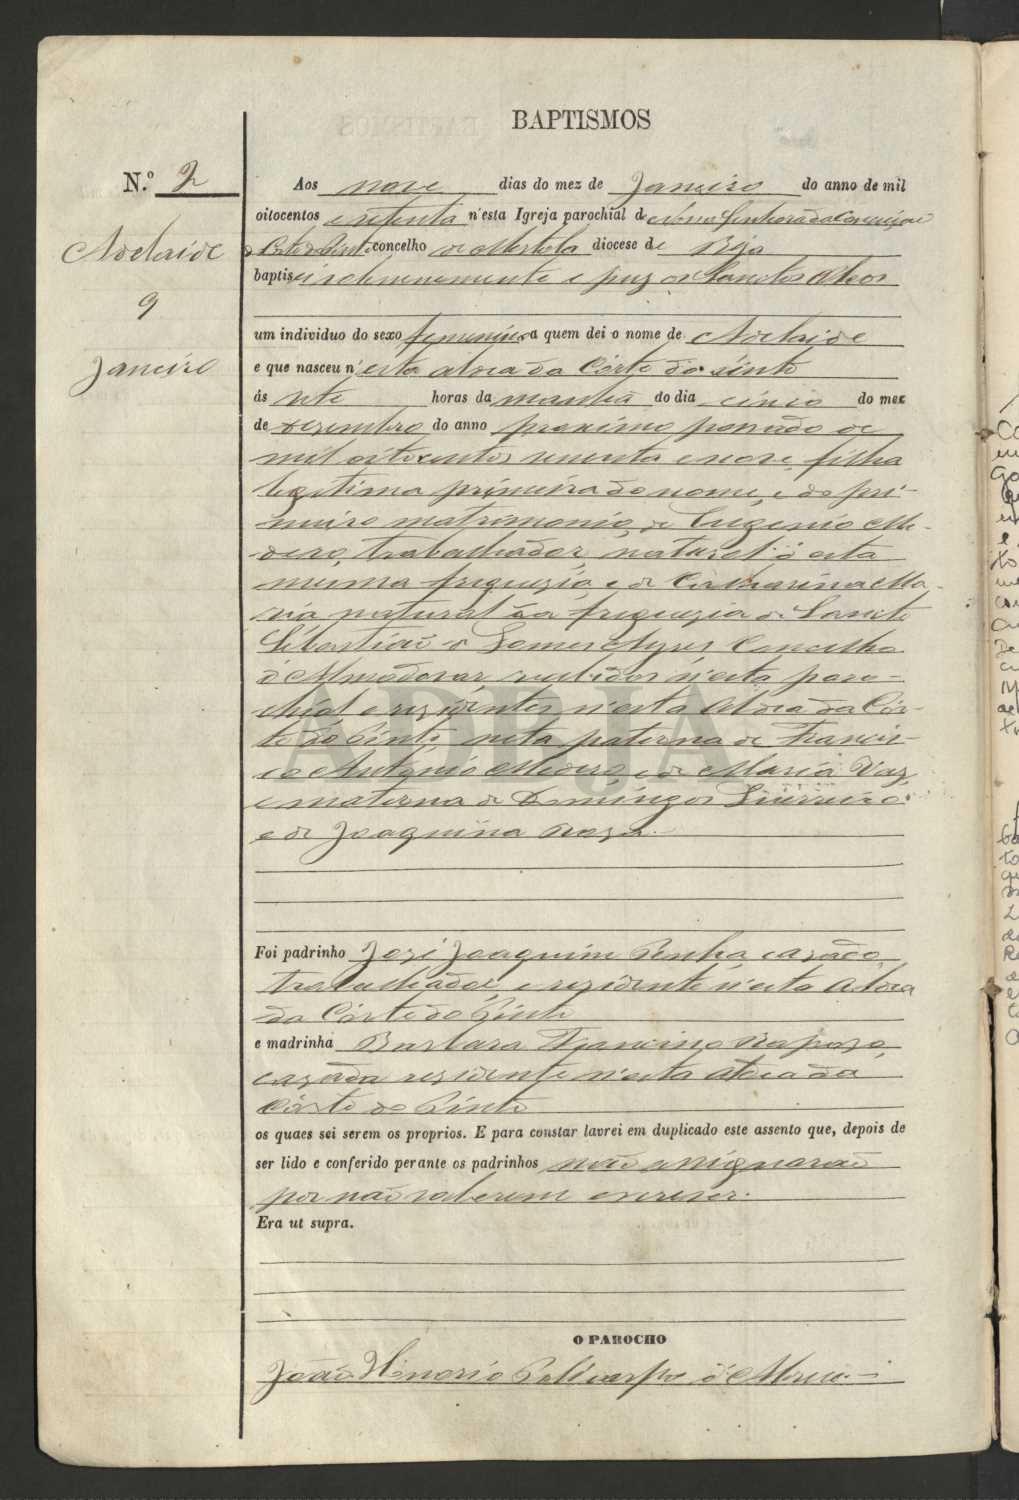 BAPTISMOS
N.º 2
Adelaide
9
Janeiro
Aos nove dias do mez de Janeiro do anno de mil
oitocentos e setenta n'esta Igreja parochial de Nossa Senhora da Conceição
da Corte do Pinto concelho de Mertola diocese de Beja
baptisei solemnemente e puz os Sanctos Oleos
um individuo do sexo femenino a quem dei o nome de Adelaide
e que nasceu n'esta aldea da Côrte do Pinto
ás sete horas da manhã do dia cinco do mez
de Dezembro do anno proximo passado de
mil oitocentos secenta e nove, filha
legitima primeira do nome, e do pri-
meiro matrimonio, de Eugenio Me-
dero, trabalhador, natural d'esta
mesma freguezia e de Catharina Ma-
ria natural da freguezia de Sancto
Sebastião de Gomes Ayres Concelho
d'Almodovar, recebidos n'esta paro-
chial e rezidentes n'esta Aldea da Côr-
te do Pinto, neta paterna de Francis-
co António Medero, e de Maria Vaz,
e materna de Domingos Guerreiro
e de Joaquina Roza.
ADBJA
Foi padrinho Jozé Joaquim Penha, cazado,
trabalhador, e rezidente n'esta Aldea
da Côrte do Pinto
e madrinha Barbara Francisca Rapozo,
cazada rezidente n'esta Aldea da
Côrte do Pinto
os quaes sei serem os proprios. E para constar lavrei em duplicado este assento que, depois de
ser lido e conferido perante os padrinhos não assignarão
por não saberem escrever.
Era ut supra.
O PAROCHO
João Honorio Policarpo